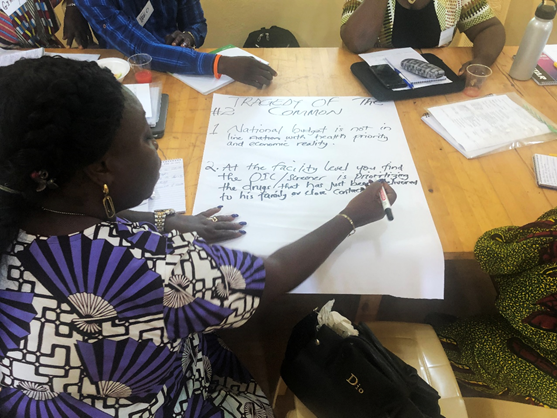 TRAGEDY OF THE
#2 COMMON
1 National budget is not in
line nation with health priority
and economic reality.
2. At the facility level you find
the OIC/screener is prioritizing
the drugs that has just been
to his family or close contact
Dio